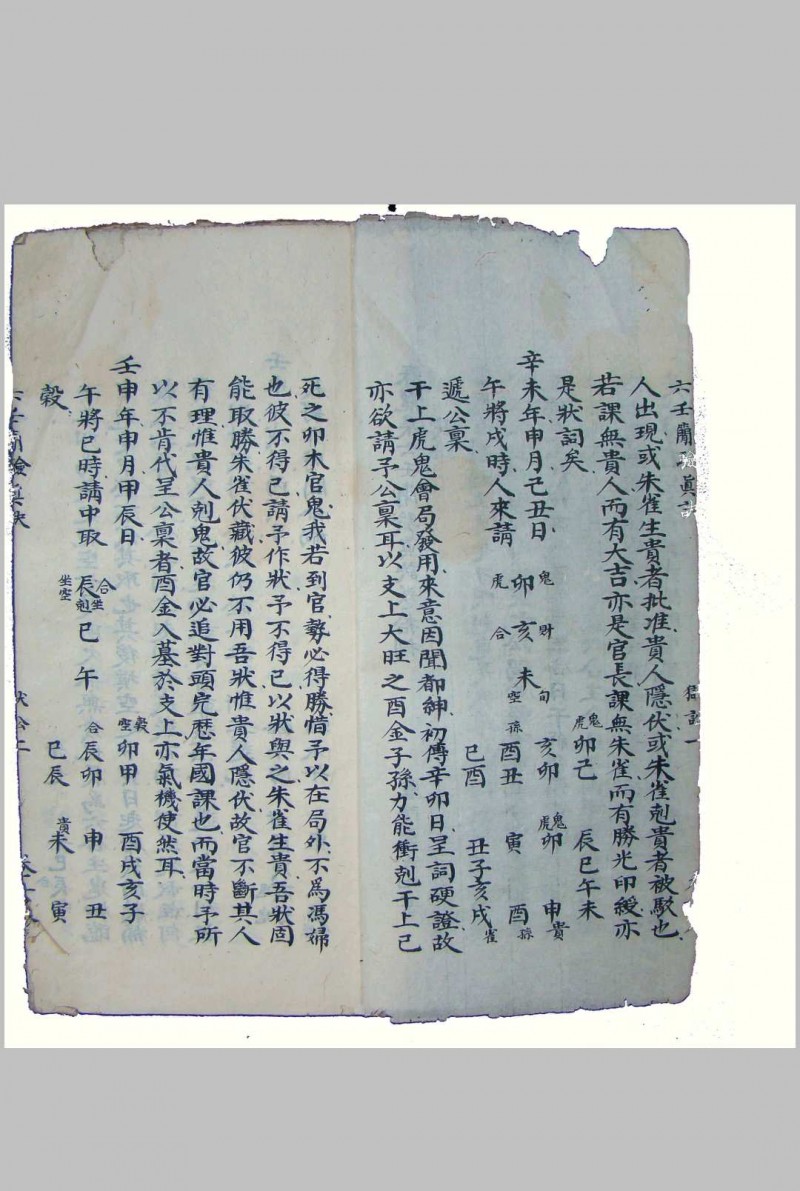 六壬蘭 真
獄訟一
人出現或朱雀生貴者批准貴人隱伏或朱雀剋貴者被駁也
若課無貴人而有大吉亦是官長課無朱雀而有勝光印綬亦
是狀詞矣
鬼虎 卯己 辰巳午未
辛未年申月己丑日 鬼虎 卯 財合 亥 未 旬空 亥卯 鬼虎 卯 申貴
午將戌時人來請 孫 酉丑 寅 酉 孫
遞公稟 巳酉 丑子亥戌 雀
干上虎鬼會局發用來意因聞都紳初傳辛卯日呈詞硬證故
亦欲請予公稟耳以支上大旺之酉金子孫力能衝剋干上已
死之卯木官鬼我若到官勢必得勝惜予以在局外不為馮婦
也彼不得已請予作狀予不得已以狀與之朱雀生貴吾狀固
能取勝朱雀伏藏彼仍不用吾狀惟貴人隱伏故官不斷其人
有理惟貴人剋鬼故官必追對頭完歷年國課也而當時予所
以不肯代呈公稟者酉金入墓於支上亦氣機使然耳
壬申年申月甲辰日 穀空 卯甲 酉戌亥子
午將巳時請中取 坐空 辰 合坐剋 巳 午 合 辰卯 申 丑
穀 巳辰 貴 未 寅
六壬蘭